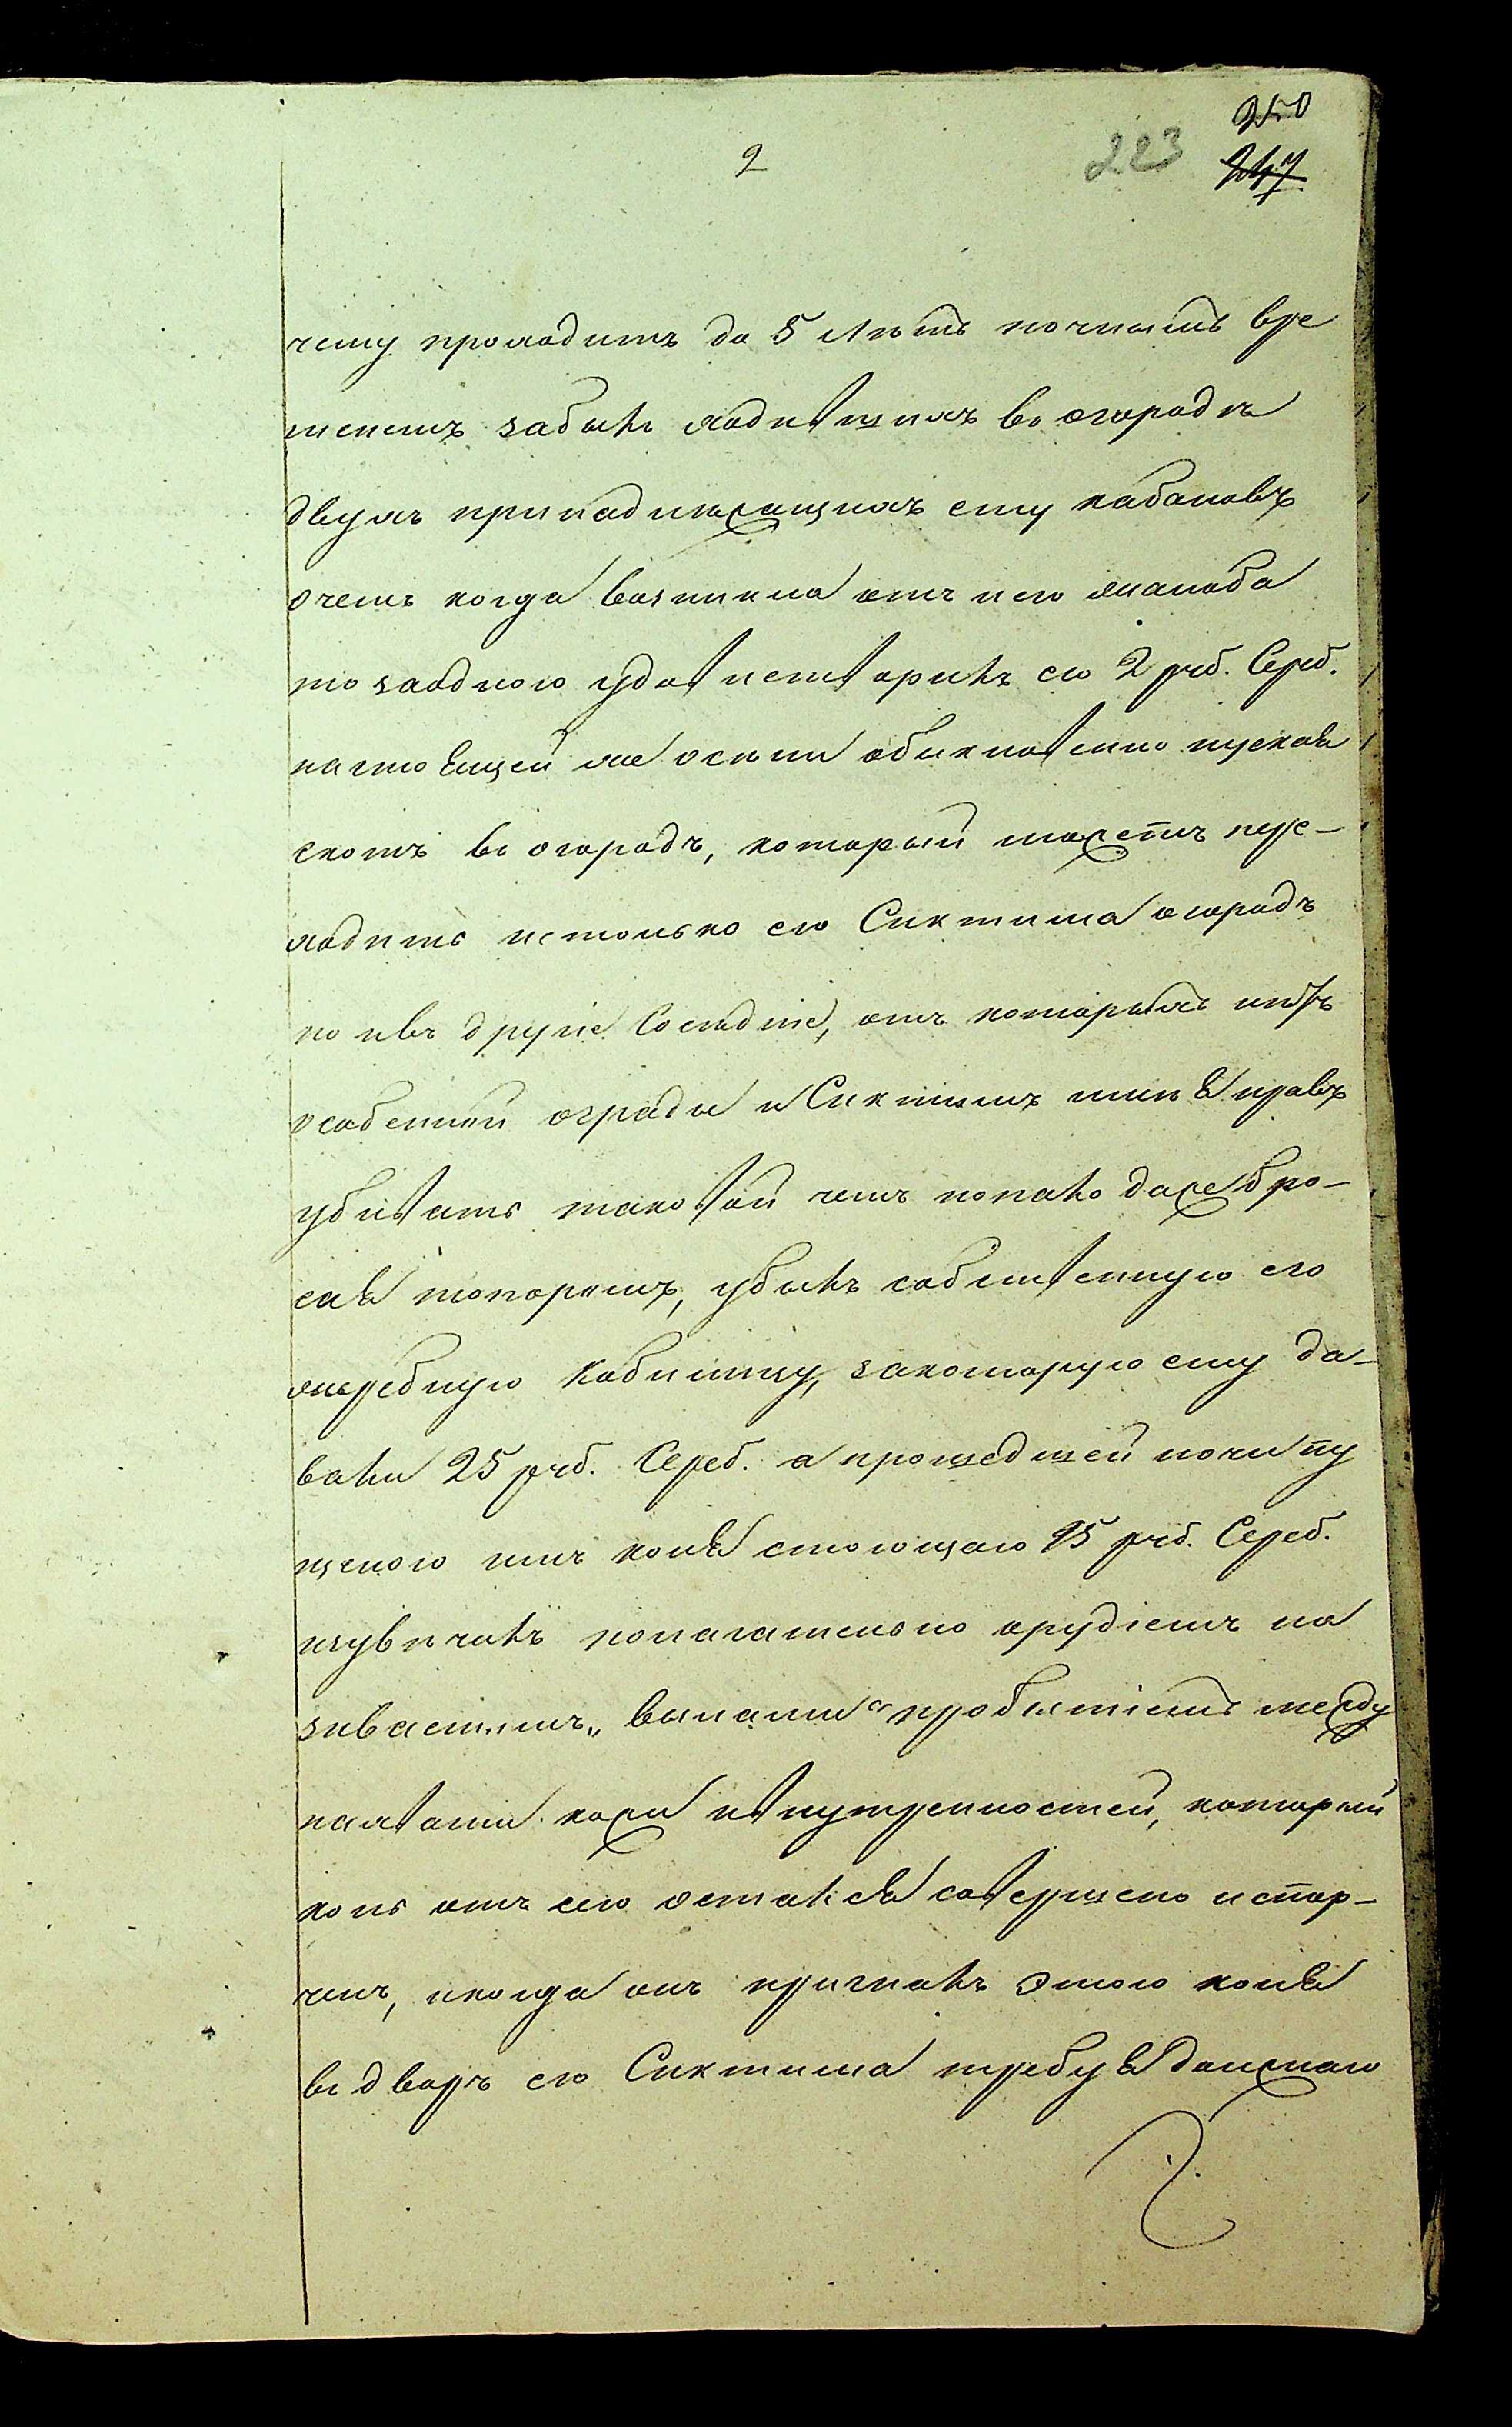 2
223
250
247
чему проходитъ до 5 лѣтъ ночнымъ вре
менемъ забилъ ходившихъ въ огородѣ
двухъ принадлежащихъ ему кабановъ
очемъ когда возникла отъ него жалоба
то заодного удовлетворилъ его 2 руб. Сереб.
настоящей же осени обыкновенно пуская
скотъ въ огородъ, который можетъ пере-
ходить нетолько его Сиктима огородъ
но ивъ другіе Соседніе, отъ которыхъ нѣтъ
особенной ограды и Сиктимъ имѣя нравъ
убивать таковой чемъ попало даже бро-
сая топоромъ, убилъ собственную его
жеребную кобылицу, закоторую ему да-
вали 25 руб. Сереб. а прошедшей ночи пу
щеного имъ коня стоющаго 15 руб. Сереб.
изувѣчилъ полагательно орудіемъ на
зиваемимъ „вилами“ пробитіемъ между
пахвами кожи и внутренностей, который
конь отъ сего остался совершено испор-
ченъ, икогда онъ пригналъ этого коня
въ дворъ его Сиктима требуя должнаго